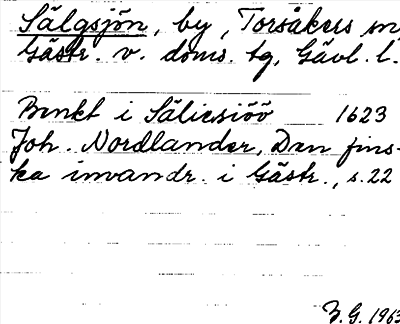 Sälgsjön, by, Torsåkers sn,
Gästr. v. doms. tg, Gävl. l.
Benkt i Sälicsiöö 1623
Joh. Nordlander, Den fins-
ka invandr. i Gästr., s. 22
B.G. 1963